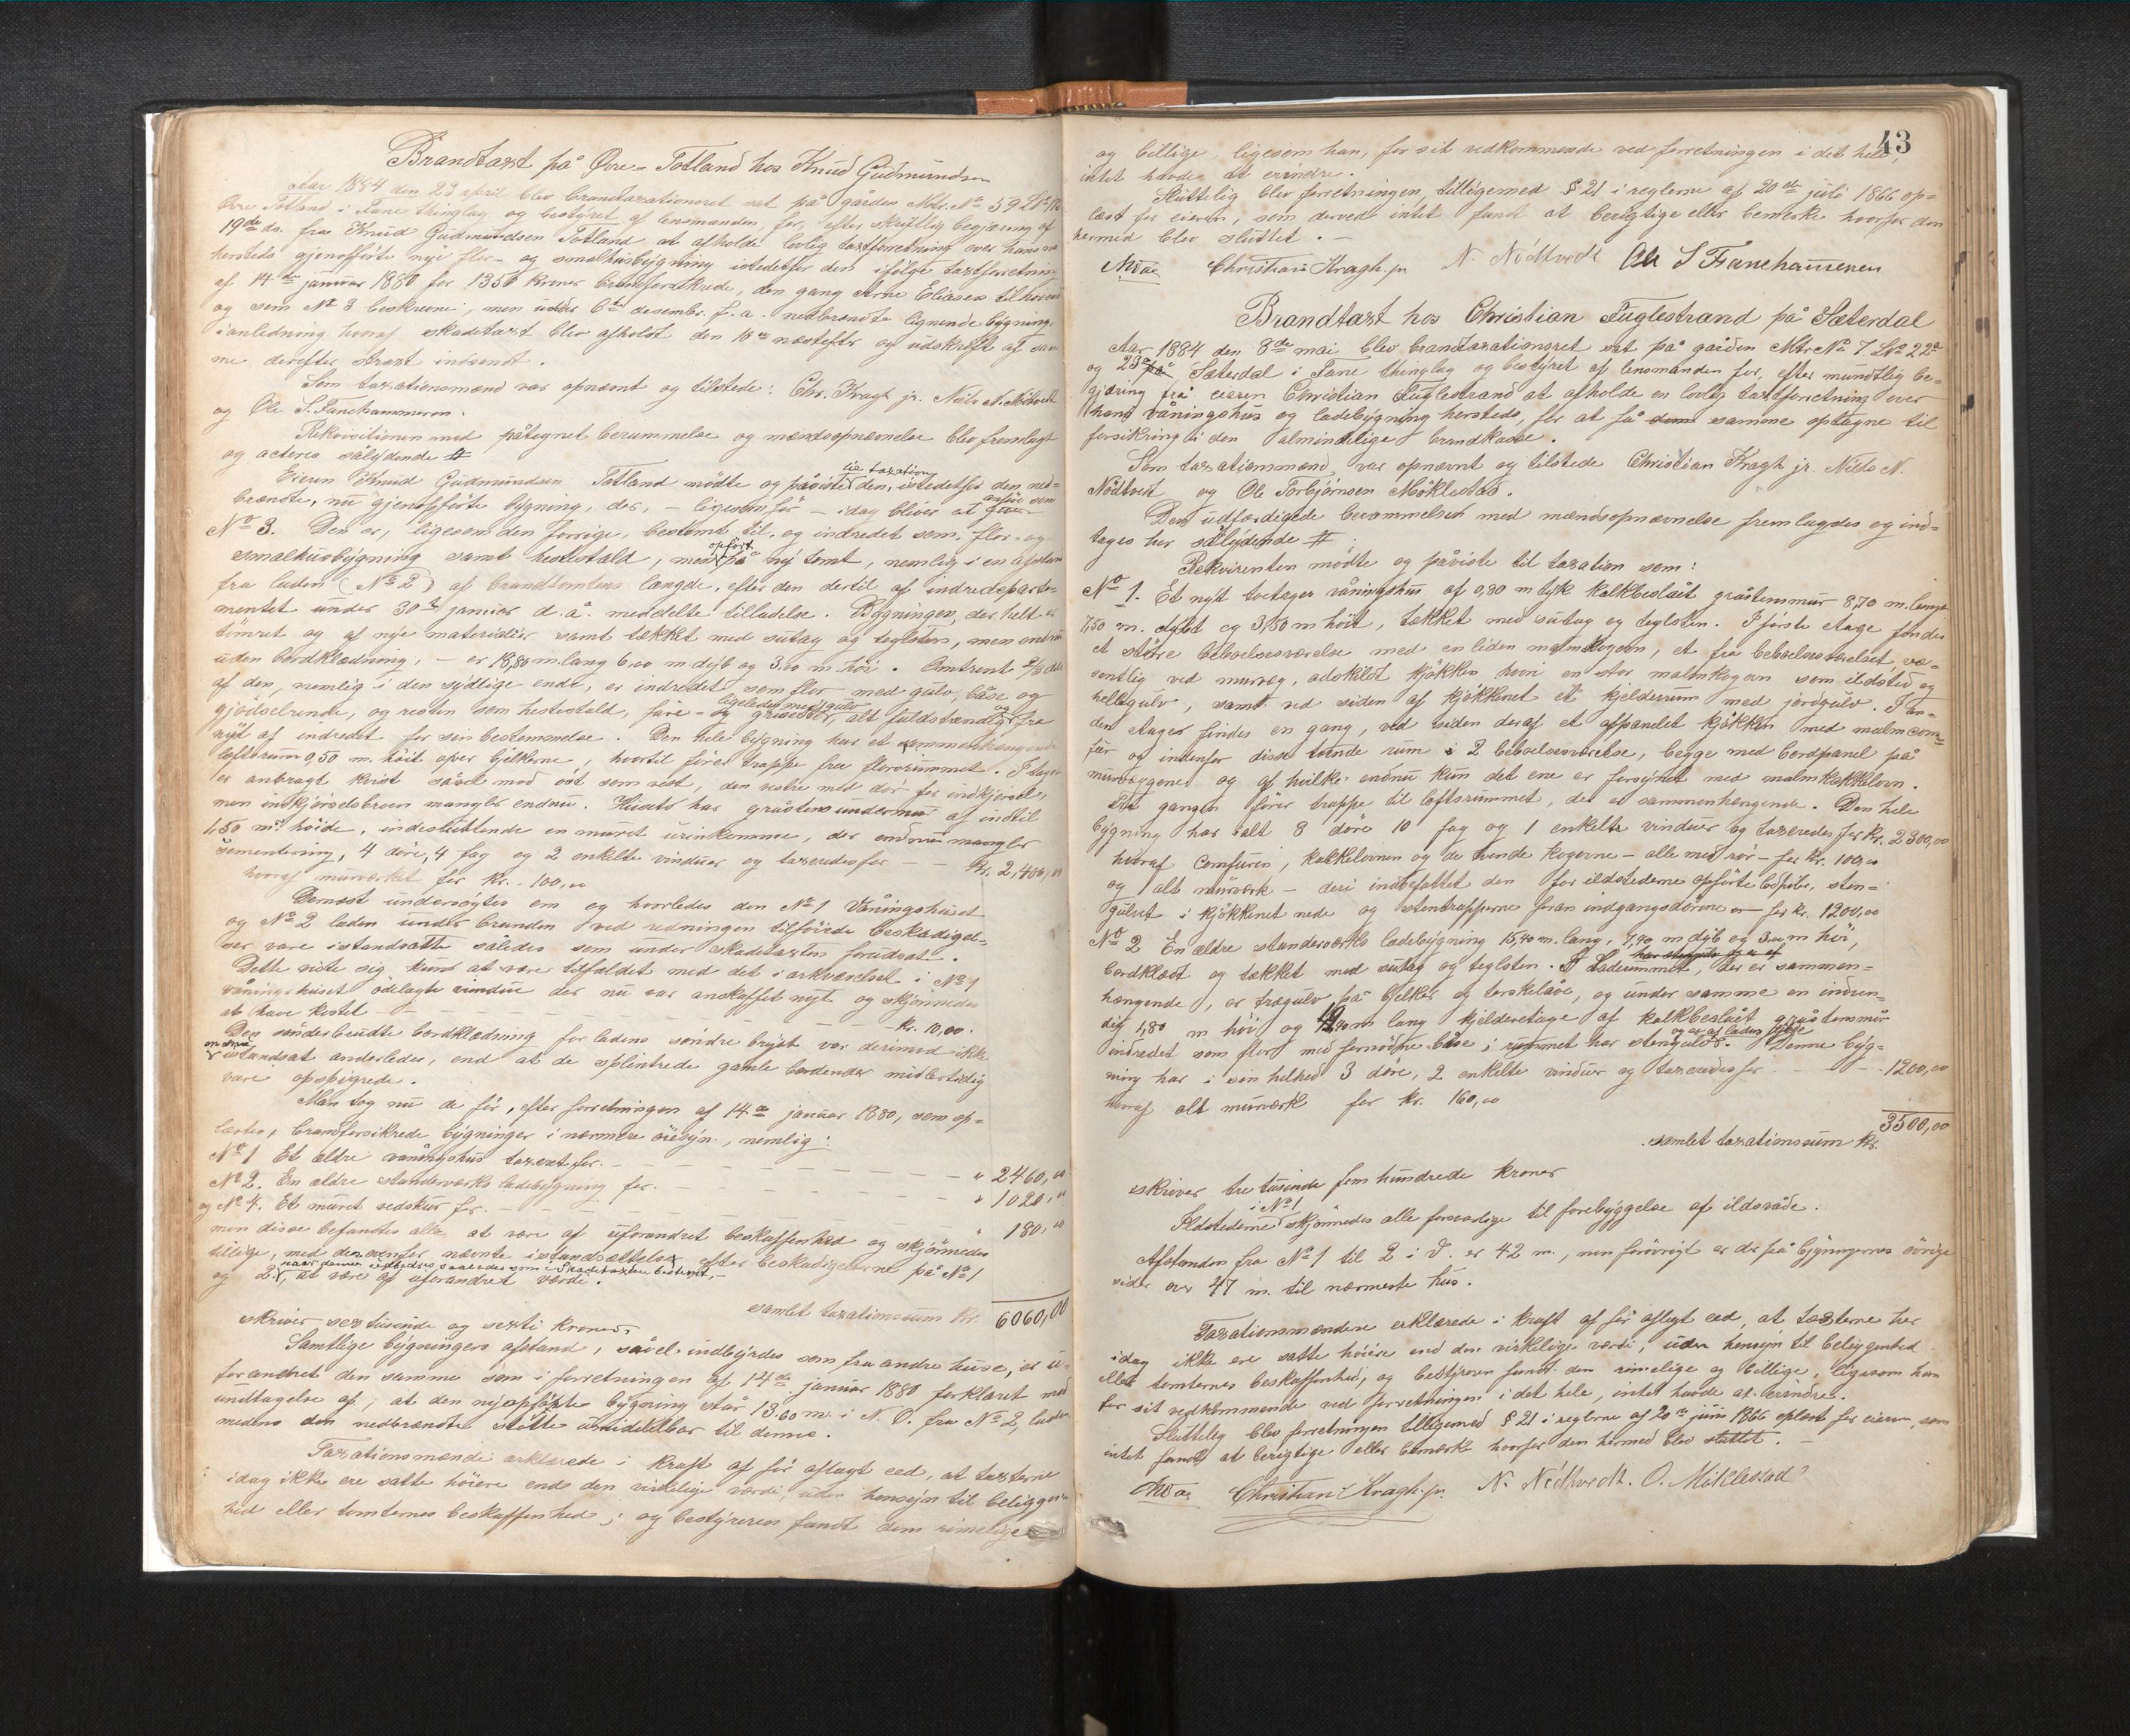 Brandtaxt på Øvre-Totland hos Knud Gudmundsen
Aar 1884 den 23 april blev brandtaxationsret sat på gården Mtr. No 59
Øvre Totland i Fane thinglag og bestyret af lensmanden, for, efter skriftlig begjæring af
19de ds. fra Knud Gudmundsen Totland at afholde lovlig taxtforretning over hans
hersteds gjenopførte nye flor- og smalhusbygning istedetfor den ifølge taxtforretning
af 14de januar 1880 for 1350 kroner brandforsikrede, den gang Arne Eliasen tilhørende
og som No 3 beskrevne, men under 6te desember f. a. nedbrændte lignende bygning,
i anledning hvoraf skadetaxt blev afholdt den 10de næstefter og udskrift af sam-
me derefter straxt indsendt.
Som taxationsmænd var opnævnt og tilstede: Chr. Kragh jr. Nils N. Nødtvedt
og Ole S. Fanehammeren.
Rekvisitionen med påtegnet berammelse og mændsopnævnelse blev fremlagt
og acteres sålydende #
Eieren Knud Gudmundsen Totland mødte og påviste til taxation den, istedetfor den ned-
brændte, nu gjenopførte bygning, der, - ligesom før - idag bliver at anføre som
No 3. Den er, ligesom den forrige, bestemt til, og indredet som flor- og
smalhusbygning samt hestestald, men opført på ny tomt, nemlig i en afstand
fra laden (No 2) af brandtomtens længde, efter den dertil af indredeparte-
mentet under 30te januar d. å. meddelte tilladelse. Bygningen, der helt er
tømret og af nye materialier samt tækket med sutag og teglsten, men endnu
uden bordklædning, - er 18,80 m. lang 6,00 m dyb og 3,10 m. høi. Omtrent 2/3 dele
af den, nemlig i den sydlige ende, er indredet som flor med gulv, båse og
gjødselrende, og resten som hestestald, fåre- og grisestier, ligeledes med gulv, alt fuldstændigt og fra
nyt af indredet for sin bestemmelse. Den hele bygning har et sammenhængende
loftsrum 0,50 m. høit over bjelkerne, hvortil fører trappe fra florsrummet. I taget
er anbragt kvist såvel mod øst som vest, den vestre med dør for indkjørsel,
men indkjørselsbroen mangler endnu. Huset har gråstens undermur af indtil
1,50 m. høide, indesluttende en muret urinkomme, der endnu mangler
sementering, 4 døre, 4 fag og 2 enkelte vinduer og taxeredes for — — Kr. 2,400,00
hvoraf murværket for Kr. 100,00
Dernæst undersøgtes om og hvorledes den No 1 Våningshuset
og No 2 laden under branden ved redningen tilføiede beskadigel-
ser vare istandsatte således som under skadetaxten forudsat.
Dette viste sig kun at være tilfældet med det i arkværelset i No 1
våningshuset ødelagte vindue der nu var anskaffet nyt og skjønnedes
at have kostet — — — — — — — kr. 10,00.
Den sønderbrudte bordklædning for ladens søndre bryst var derimod ikke
endnu istandsat anderledes, end at de splintrede gamle bordender midlertidig
vare opspigrede.
Man tog nu de før, efter forretningen af 14de januar 1880, som op-
læstes, brandforsikrede bygninger i nærmere øiesyn, nemlig:
No 1 Et ældre våningshus taxeret for. — — — — — — " 2460,00
No 2. En ældre standerværks ladebygning for. — — — — — " 1020,00
og No 4. Et muret vedskur for. — — — — — — " 180,00
men disse befandtes alle at være af uforandret beskaffenhed og skjønnedes
tillige, med den ovenfor nævnte istandsættelse efter beskadigelserne på No 1
og 2, naar denne udbedres saaledes som i Skadetaxten bestemt,- at være af uforandret værdi.
samlet taxationssum Kr. 6060,00
skriver sextusinde og sexti kroner.
Samtlige bygningers afstand, såvel indbyrdes som fra andre huse, er u-
forandret den samme som i forretningen af 14de januar 1880 forklaret med
undtagelse af, at den nyopførte bygning står 13,00 m. i N. O. fra No 2, laden
medens den nedbrændte stødte umiddelbar til denne.
Taxationsmændene erklærede i kraft af før aflagt eed, at taxterne
idag ikke ere satte høiere end den virkelige værdi, uden hensyn til beliggen-
hed eller tomternes beskaffenhed; og bestyreren fandt dem rimelige
43
og billige, ligesom han, for sit vedkommende ved forretningen i det hele,
intet havde at erindre.
Sluttelig blev forretningen, tilligemed § 21 i reglerne af 20de juli 1866 op-
læst for eieren, som derved intet fandt at berigtige eller bemerke hvorfor den
hermed blev sluttet. —
Christian Kragh. jr N. Nödtvedt Ole S Fanehammeren
Brandtaxt hos Christian Fuglestrand på Sæterdal
Aar 1884 den 8de mai blev brandtaxationsret sat på gården Mtr. No 7 Lno 22a
og 23a Sæterdal i Fane thinglag og bestyret af lensmanden for, efter mundtlig be-
gjæring fra eieren Christian Fuglestrand at afholde en lovlig taxtforretning over
hans våningshus og ladebygning hersteds, for at få dem samme optagne til
forsikring i den almindelige brandkasse.
Som taxationsmænd var opnævnt og tilstede Christian Kragh jr. Nils N.
Nödtvedt og Ole Torbjørnsen Møklestad.
Den udfærdigede berammelse med mændsopnævnelse fremlagdes og ind-
tages her sålydende #
Rekvirenten mødte og påviste til taxation som:
No 1. Et nyt toetages våningshus af 0,80 m tyk kalkbeslåt gråstensmur 8,70 m. langt
7,50 m. dybt og 3,50 m høit, tækket med sutag og teglsten. I første etage findes
et større beboelsesværelse med en liden malmkogovn, et fra beboelsesværelset væ-
sentlig ved murvæg, adskildt kjøkken hvori en stor malmkogovn som ildsted og
hellegulv, samt ved siden af kjøkkenet et kjelderrum med jordgulv. I an-
den etage findes en gang, ved siden deraf et afpanelet kjøkken med malmcom-
für og indenfor disse tvende rum 2 beboelsesværelser, begge med bordpanel på
murvæggene og af hvilke endnu kun det ene er forsynet med malmkakkelovn.
Fra gangen fører trappe til loftsrummet, der er sammenhengende. Den hele
bygning har ialt 8 døre 10 fag og 1 enkelte vinduer og taxeredes for Kr. 2300,00
hvoraf comfuren, kakkelovnen og de tvende kogovne - alle med rør - for Kr. 100,00
og alt murværk - deri indbefattet den for ildstederne opførte skorsten, sten-
gulvet i kjøkkenet nede og stentrapperne foran indgangsdørene - for kr. 1200,00
No 2 En ældre standerværks ladebygning 15,40 m. lang, 7,40 m dyb og 3,00 m høi,
bordklædt og tækket med sutag og teglsten. I Laderummet, der er sammen-
hængende, er trægulv på bjelker og terskelåve, og under samme en indven-
dig 1,80 m høi og lang kjelderetage af kalkbeslåt gråstensmur
indredet som flor med fornødne båse i rummet har stengulv. Denne byg-
ning har i sin helhed 3 døre, 2 enkelte vinduer og taxeredes for — — 1200,00
hvoraf alt murværk for kr. 160,00
samlet taxationssum Kr. 3500,00
skriver tre tusinde fem hundrede kroner
Ildstederne i No 1 skjønnedes alle forsvarlige til forebyggelse af ildsvåde.
Afstanden fra No 1 til 2 i V. er 42 m., men forøvrigt er der på bygningernes øvrige
sider over 47 m. til nærmeste hus.
Taxationsmændene erklærede i kraft af før aflagt eed, at taxterne her
idag ikke ere satte høiere end den virkelige værdi, uden hensyn til beliggenhed
eller tomternes beskaffenhed, og bestyreren fandt dem rimelige og billige, ligesom han
for sit vedkommende ved forretningen i det hele, intet havde at erindre.
Sluttelig blev forretningen tilligemed § 21 i reglerne af 20de juni 1866 oplæst for eieren, som
intet fandt at berigtige eller bemærke hvorfor den hermed blev sluttet. —
Christian Kragh. jr. N. Nödtvedt. O. Möklestad